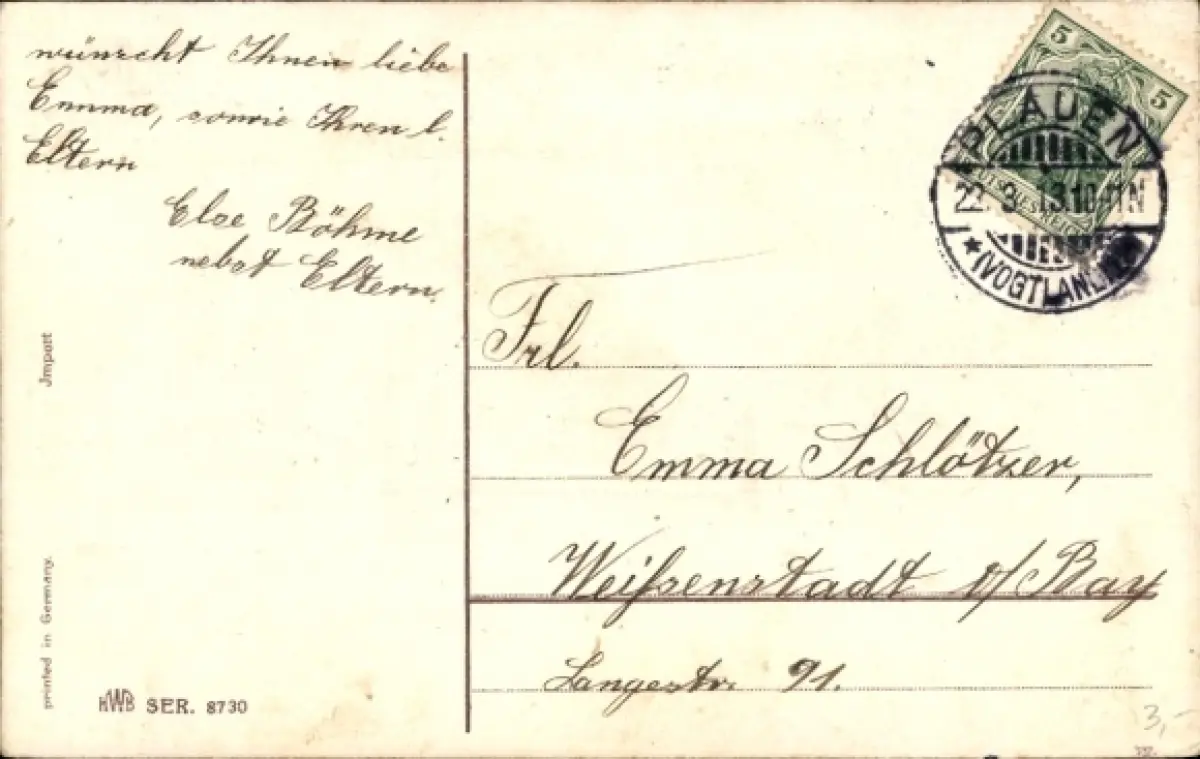 wünscht Ihnen liebe
Emma, sowie Ihren l.
Eltern
Else Böhme
nebst Eltern.
Jmport
printed in Germany.
HWB SER. 8730
5 5
PLAUEN
22. 3. 13. 10-11N
* (VOGTLAND)
DEUTSCHES REICH
Frl.
Emma Schlötzer,
Weißenstadt i/ Bay
Langestr. 91.
3,-